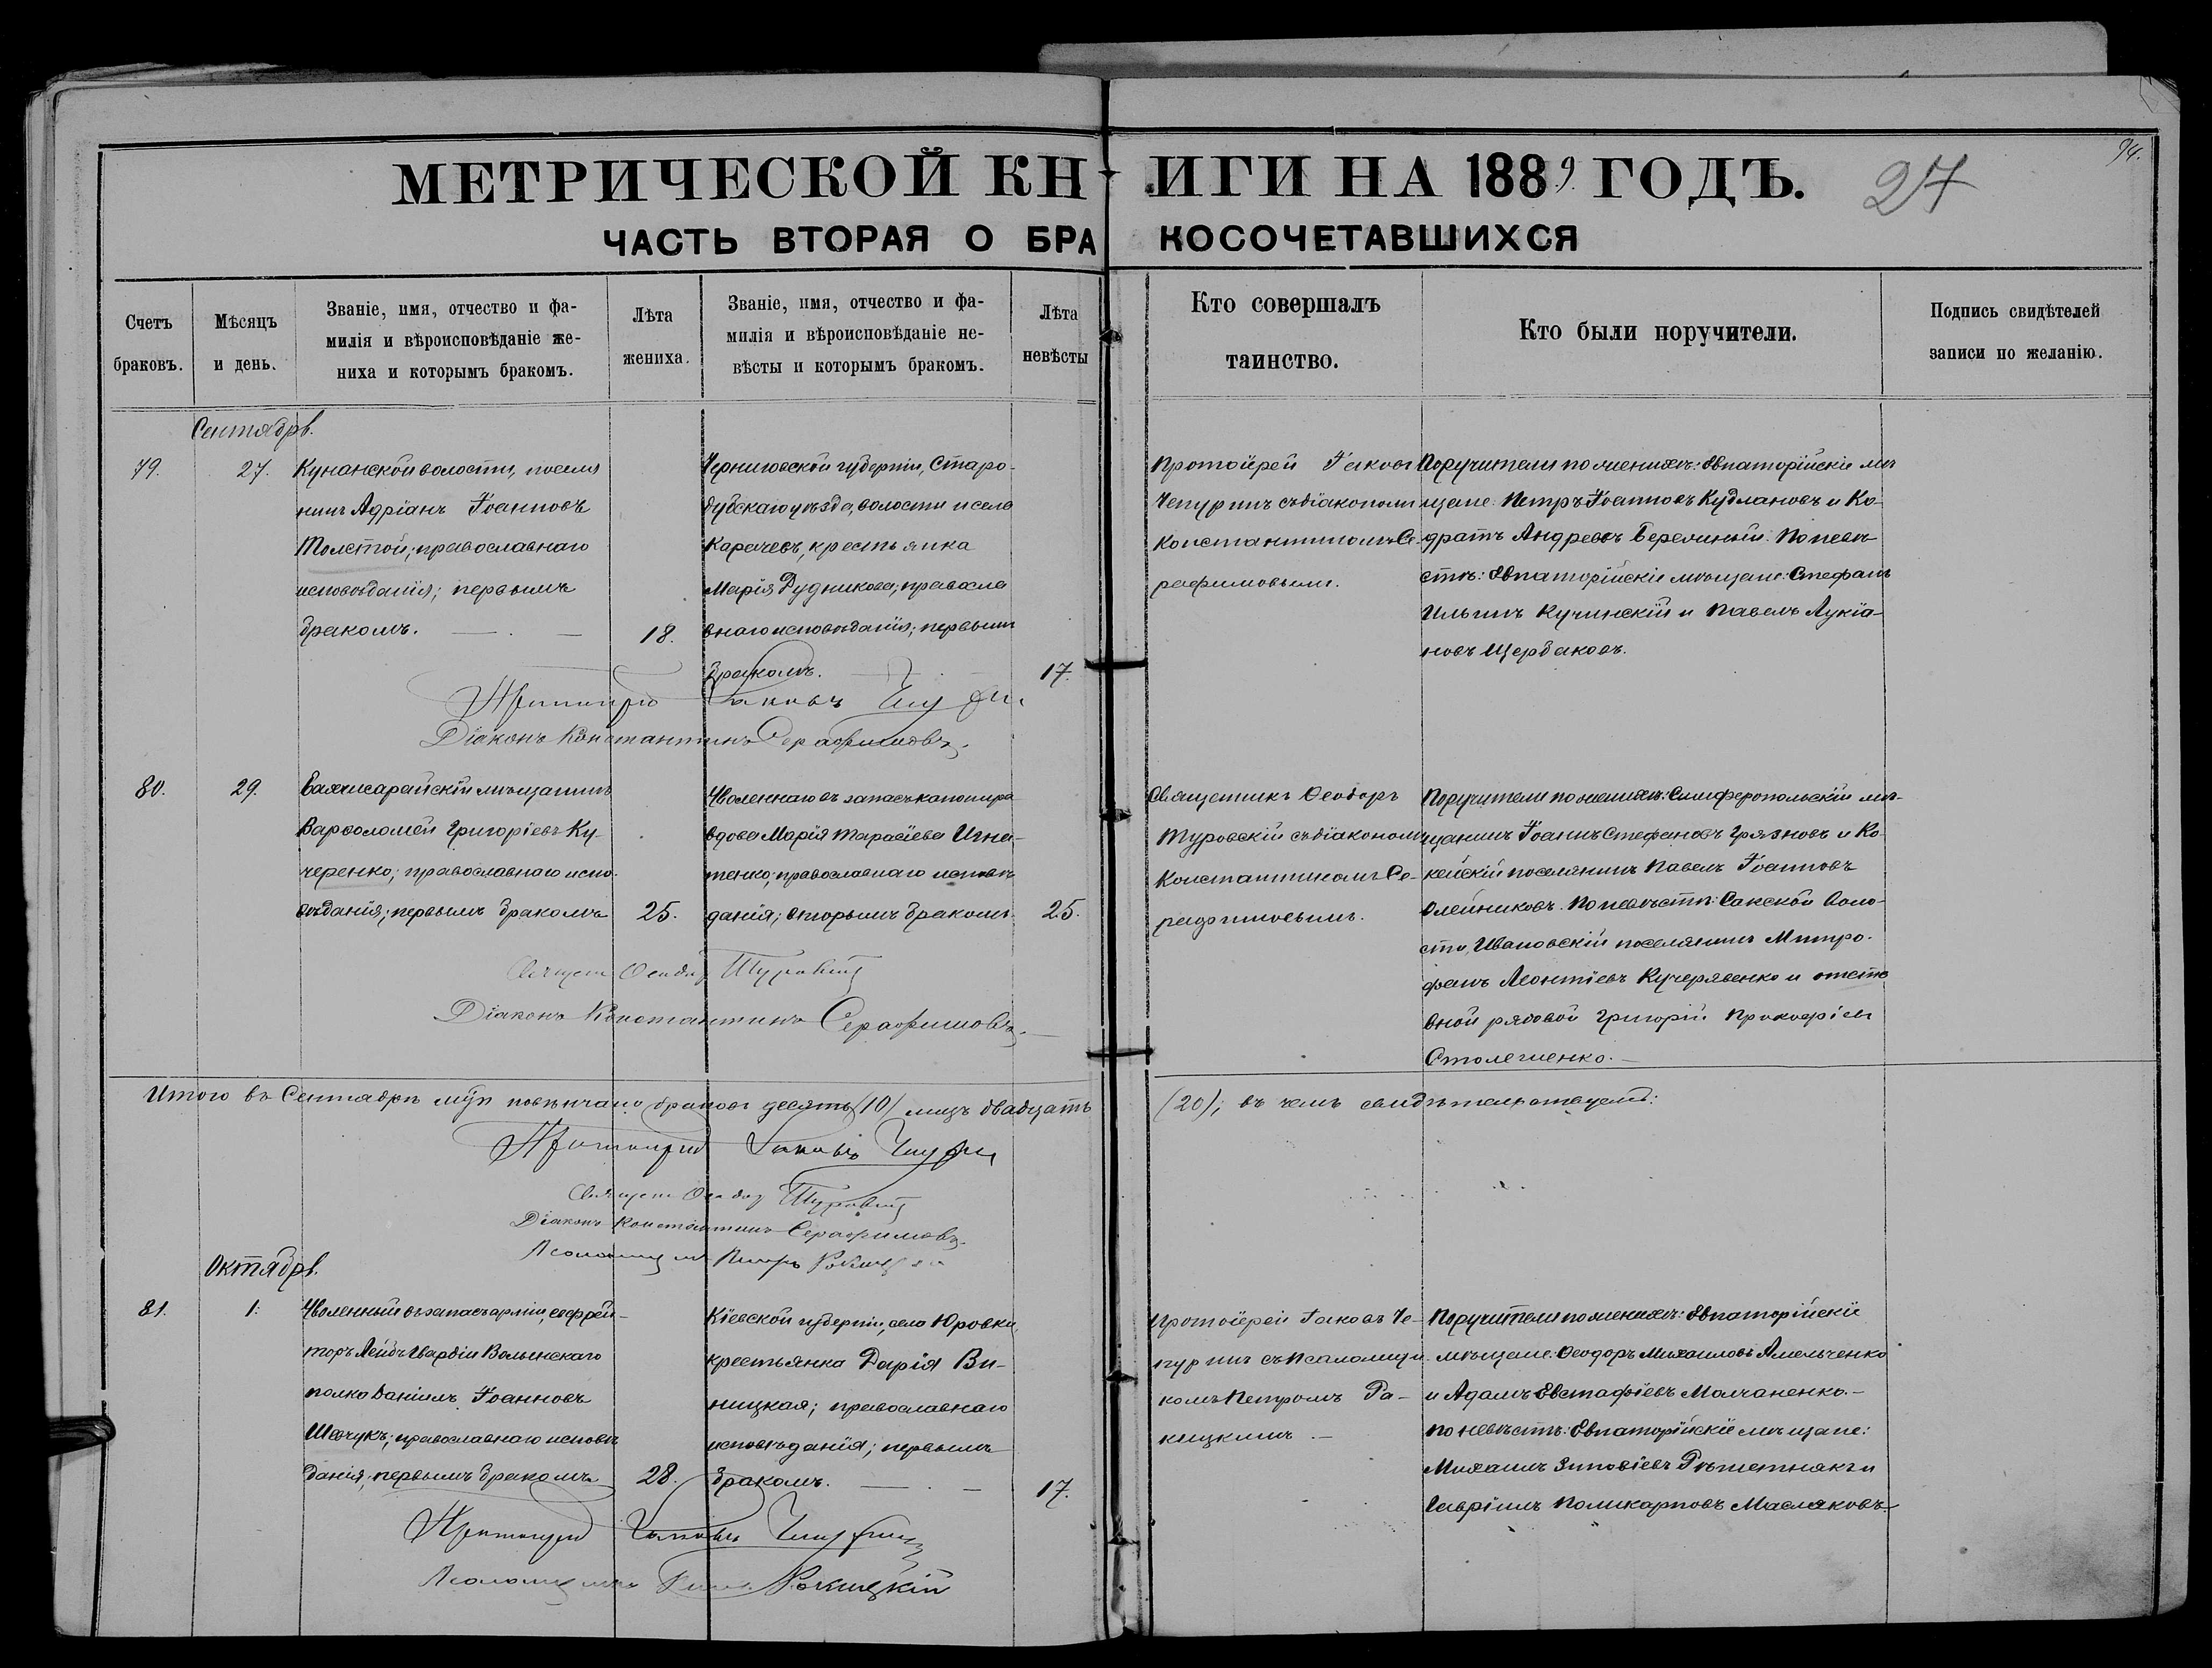 94.
МЕТРИЧЕСКОЙ КНИГИ НА 1889 ГОДЪ.
27
ЧАСТЬ ВТОРАЯ О БРАКОСОЧЕТАВШИХСЯ
Счетъ
браковъ.
Мѣсяцъ
и день.
Званіе, имя, отчество и фа-
милія и вѣроисповѣданіе же-
ниха и которымъ бракомъ.
Лѣта
жениха.
Званіе, имя, отчество и фа-
милія и вѣроисповѣданіе не-
вѣсты и которымъ бракомъ.
Лѣта
невѣсты
Кто совершалъ
таинство.
Кто были поручители.
Подпись свидѣтелей
записи по желанію.
Сентябрь.
79.
27.
Кунанской волости, поселя
нинъ Адріанъ Іоанновъ
Толстой; православнаго
исповѣданія; первымъ
бракомъ.
18.
Черниговской губерніи, Старо-
дубскаго уѣзда, волости и села
Карачевъ, крестьянка
Марія Рудникова; правосла
внаго исповѣданія; первымъ
бракомъ.
17.
Протоіерей Іаковъ
Чепуринъ съ діакономъ
Константиномъ Се-
рафимовымъ.
Поручители по женихѣ: Евпаторійскіе мѣ
щане: Петръ Іоанновъ Кудлановъ и Ко-
дратъ Андреевъ Бережный. По невѣ
стѣ: Евпаторійскіе мѣщане: Стефанъ
Ильинъ Кучинскій и Павелъ Лукіа-
новъ Щербаковъ.
Протоіерей Іаковъ Чепурин
Діаконъ Константинъ Серафимовъ.
80.
29.
Бахчисарайскій мѣщанинъ
Варѳоломей Григоріевъ Ку-
черенко; православнаго испо-
вѣданія; первымъ бракомъ
25.
Уволеннаго въ запасъ канонира
вдова Марія Тарасіева Игна-
тенко; православнаго исповѣ
данія; вторымъ бракомъ.
25.
Священникъ Ѳеодоръ
Туровскій съ діакономъ
Константиномъ Се-
рафимовымъ.
Поручители по женихѣ: Симферопольскій мѣ-
щанинъ Іоаннъ Стефановъ Грязновъ и Ко-
кейскій поселянинъ Павелъ Іоанновъ
Олейниковъ. По невѣстѣ: Сакской воло-
сти, Ивановскій поселянинъ Митро-
фанъ Леонтіевъ Кучерявенко и отста
вной рядовой Григорій Прокофіевъ
Столешенко.
Священ Ѳеодоръ Туровскій
Діаконъ Константинъ Серафимовъ.
Итого въ Сентябрѣ м͠цѣ повѣнчано браковъ десять (10) лицъ двадцать (20); въ чемъ свидѣтельствуемъ:
Протоіерей Іаковъ Чепурин
Священ Ѳеодоръ Туровскій
Діаконъ Константинъ Серафимовъ.
Псаломщикъ Петръ Ракицкій
Октябрь.
81.
1.
Уволенный въ запасъ арміи, ефрей-
торъ Лейбъ Гвардіи Волынскаго
полка Даніилъ Іоанновъ
Шевчукъ; православнаго исповѣ
данія; первымъ бракомъ
28.
Кіевской губерніи, села Юровки,
крестьянка Дарія Ви-
ницкая; православнаго
исповѣданія; первымъ
бракомъ.
17.
Протоіерей Іаковъ Че-
пуринъ съ псаломщи
комъ Петромъ Ра-
кицкимъ.
Поручители по женихѣ: Евпаторійскіе
мѣщане: Ѳеодоръ Михаиловъ Амельченко
и Адамъ Евстафіевъ Молчаненко.
по невѣстѣ: Евпаторійскіе мѣщане:
Михаилъ Зиновіевъ Рѣшетнякъ и
Гавріилъ Поликарповъ Масляковъ.
Протоіерей Іаковъ Чепурин
Псаломщикъ Ракицкій